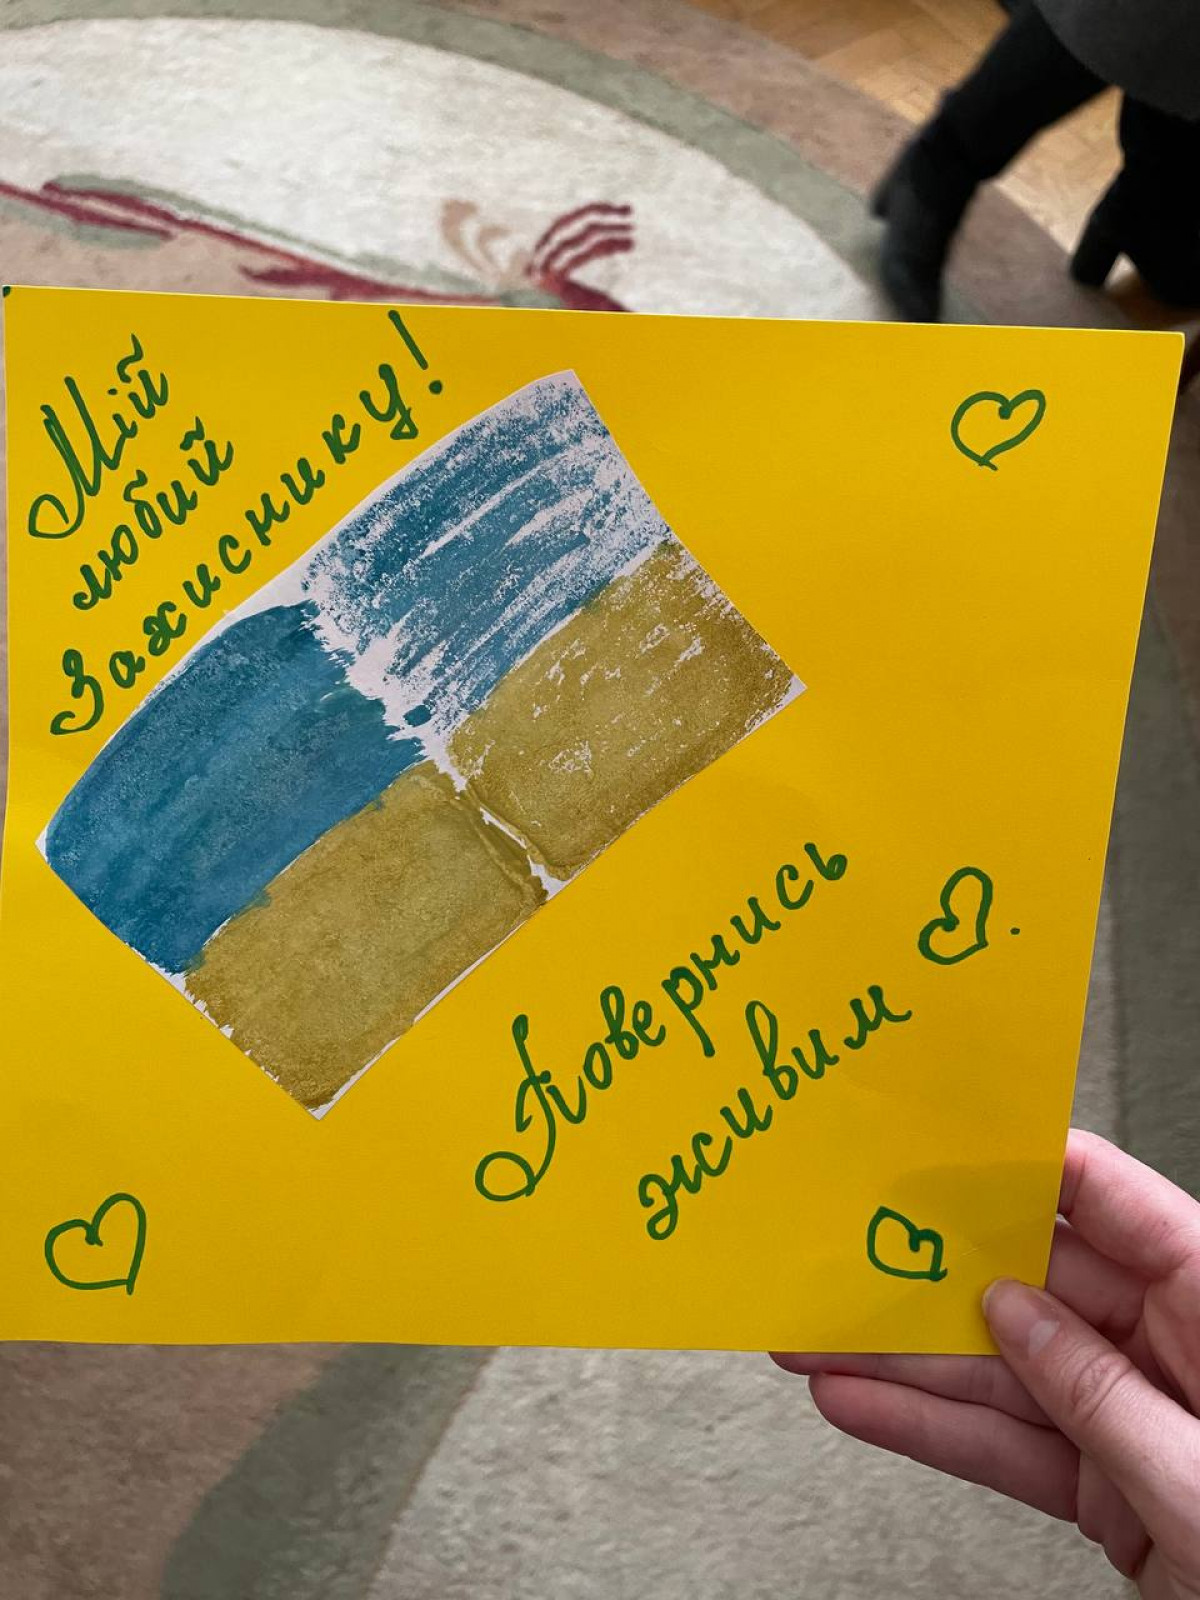 Мій
любий
Захиснику!
Повернись
живим